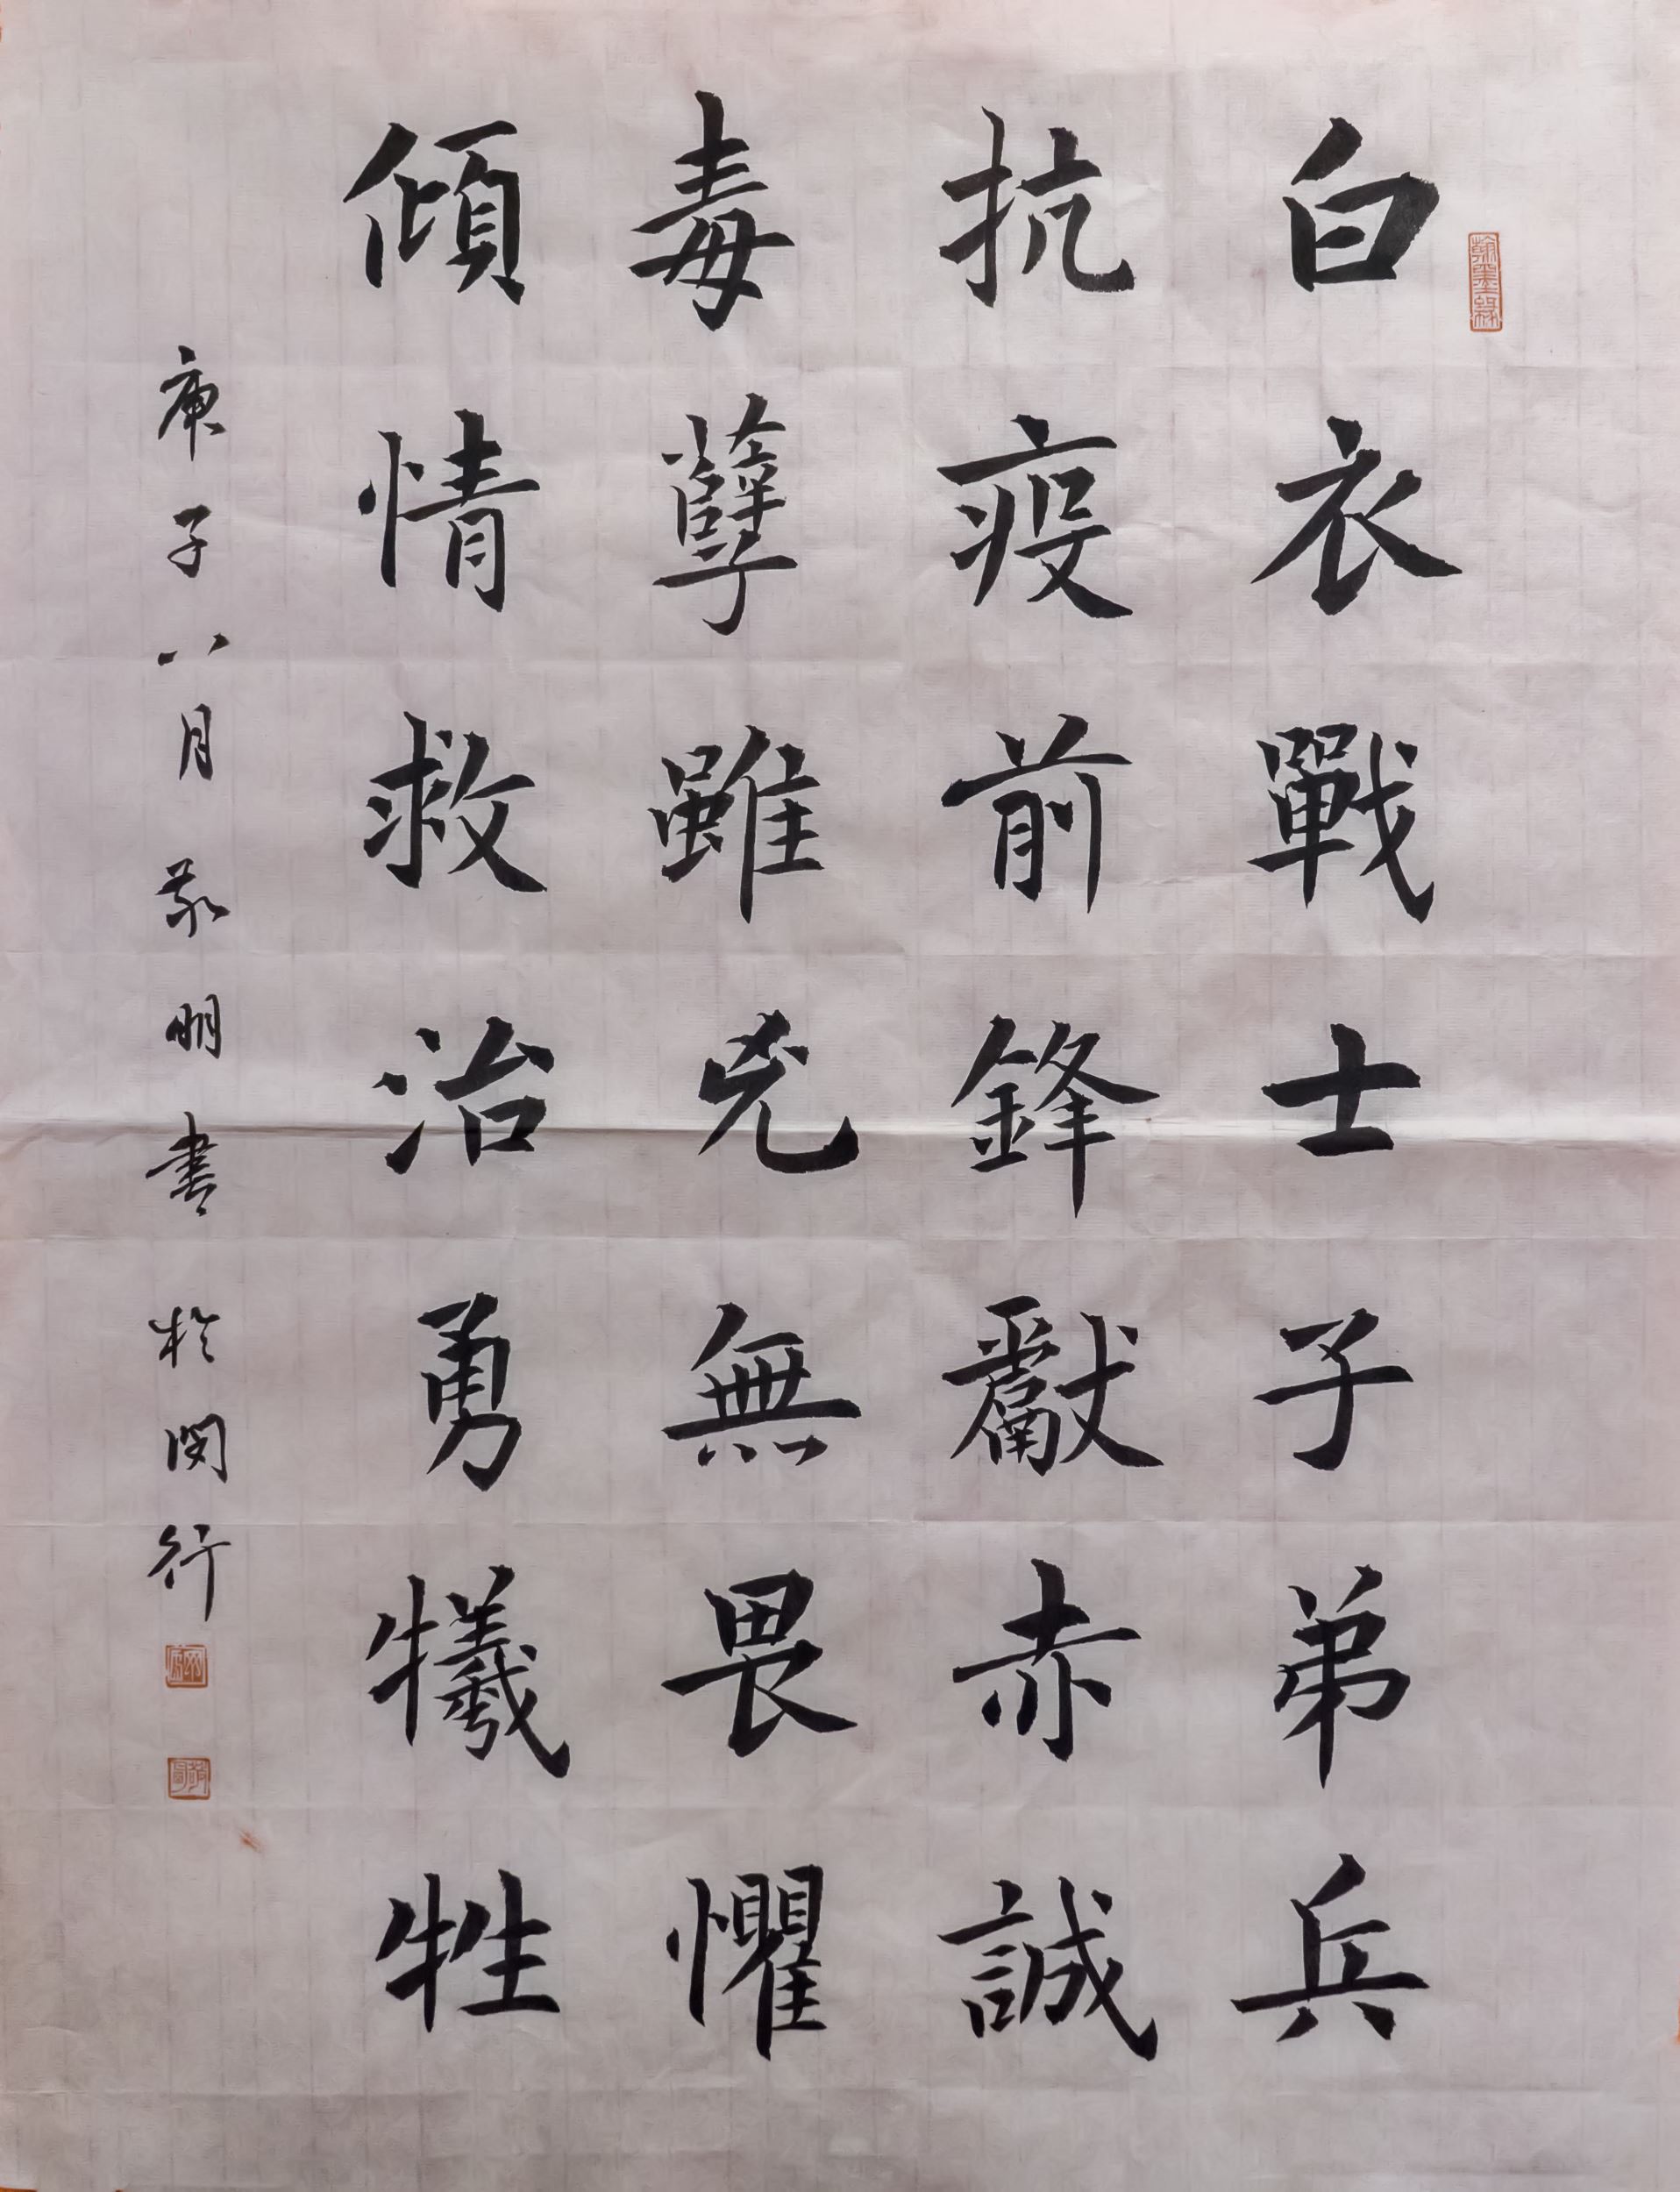 翰墨緣
白衣戰士子弟兵
抗疫前鋒獻赤誠
毒孽雖兇無畏懼
傾情救治勇犧牲
庚子八月敬明書於閔行